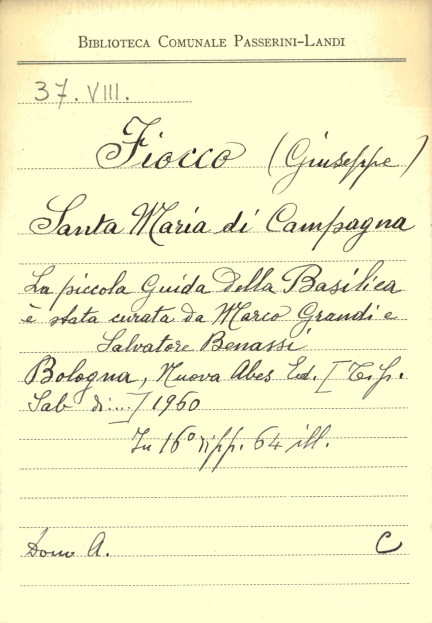 BIBLIOTECA COMUNALE PASSERINI-LANDI
37. VIII.
Fiocco (Giuseppe)
Santa Maria di Campagna
La piccola Guida della Basilica
è stata curata da Marco Grandi e
Salvatore Benassi
Bologna, Nuova Abes Ed. [Tip.
Sab di...] 1960
In 16° di pp. 64 ill.
Dono A.
C